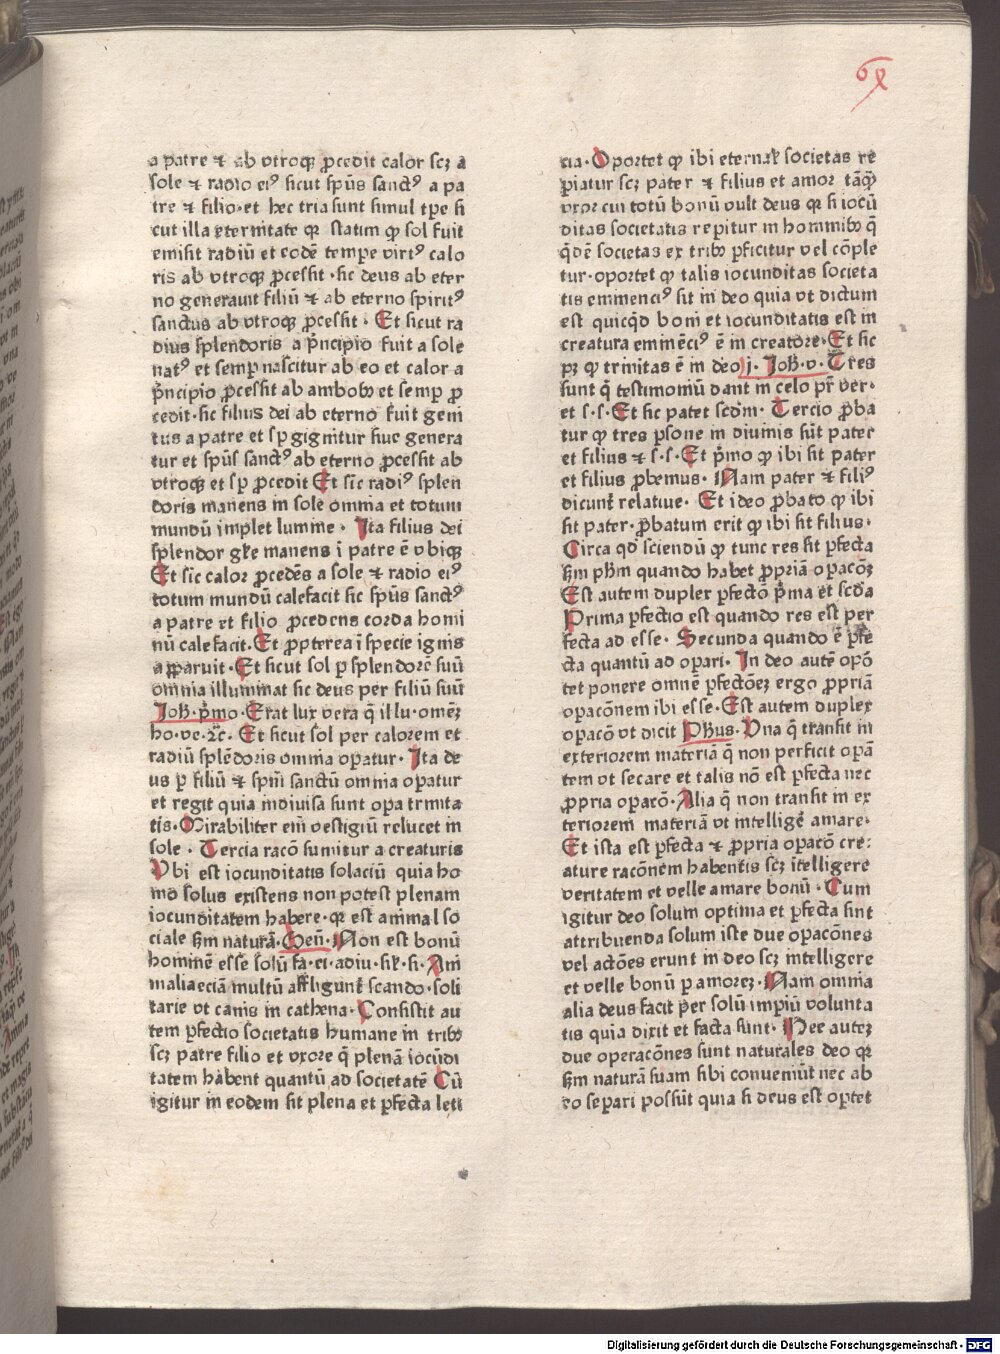 69
a patre ⁊ ab vtroq; ꝓcedit calor scꝫ a
sole ⁊ radio eiꝰ sicut spūs sanctꝰ a pa
tre ⁊ filio·et hec tria sunt simul tꝑe si
cut illa eternitate qꝛ statim ꝙ sol fuit
emisit radiū et eodē tempe virtꝰ calo
ris ab vtroq; ꝓcessit·sic deus ab eter
no generauit filiū ⁊ ab eterno spiritꝰ
sanctus ab vtroq; ꝓcessit·Et sicut ra
dius splendoris a p̄ncipio fuit a sole
natꝰ et semp nascitur ab eo et calor a
p̄ncipio ꝓcessit ab amboꝫ et semp ꝓ
cedit·sic filius dei ab eterno fuit geni
tus a patre et sꝑ gignitur siue genera
tur et spūs sanctꝰ ab eterno ꝓcessit ab
vtroq; et sꝑ ꝓcedit Et sic radiꝰ splen
doris manens in sole omnia et totum
mundū implet lumine·Ita filius dei
splendor gl̄ie manens ī patre ē vbiq;
Et sic calor ꝓcedēs a sole ⁊ radio eiꝰ
totum mundū calefacit sic spūs sanctꝰ
a patre et filio ꝓcedens corda homi
nū calefacit·Et ꝓpterea ī specie ignis
apparuit·Et sicut sol ꝑ splendorē suū
omnia illuminat sic deus per filiū suū
Joh̄·p̄mo·Erat lux vera q̄ illu·omēꝫ
ho·ve·⁊c̄·Et sicut sol per calorem et
radiū splēdoris omnia opatur·Ita de
us ꝑ filiū ⁊ spm̄ sanctū omnia opatur
et regit quia indiuisa sunt opa trinita
tis·Mirabiliter em̄ vestigiū relucet in
sole·Tercia racō sumitur a creaturis
Vbi est iocunditatis solaciū quia ho
mo solus existens non potest plenam
iocunditatem habere·qꝛ est animal so
ciale ẜm naturā·Gen̄·Non est bonū
hominē esse solū fa·ei·adiu·sil̄·si·Am
malia eciā multū affligunt᷑ scando·soli
tarie vt canis in cathena·Consistit au
tem ꝑfectio societatis humane in tribꝫ
scꝫ patre filio et vxore q̄ plenā iocūdi
tatem habent quantū ad societatē Cū
igitur in eodem sit plena et ꝑfecta leti
cia·Oportet ꝙ ibi eternal̄ societas re
ꝑiatur scꝫ pater ⁊ filius et amor tāꝙ
vxor cui totū bonū vult deus qꝛ si iocū
ditas societatis repitur in hominibꝫ q̄
q̄dē societas ex tribꝫ ꝑficitur vel cōple
tur·oportet ꝙ talis iocunditas societa
tis emmenciꝰ sit in deo quia vt dictum
est quicqd̄ boni et iocunditatis est in
creatura eminēciꝰ ē in creatore·Et sic
pꝫ ꝙ trinitas ē in deo j·Joh̄·v·Tres
sunt q̄ testimoniū dant in celo pr̄ ver·
et s·s·Et sic patet scdm̄·Tercio ꝓba
tur ꝙ tres ꝑsone in diuinis sūt pater
et filius ⁊ s·s·Et p̄mo ꝙ ibi sit pater
et filius ꝓbemus·Nam pater ⁊ filiꝰ
dicunt᷑ relatiue·Et ideo ꝓbato ꝙ ibi
sit pater·ꝓbatum erit ꝙ ibi sit filius·
Circa qd̄ sciendū ꝙ tunc res sit ꝑfecta
ẜm ph̄m quando habet ꝓpriā opacōꝫ
Est autem duplex ꝑfectō p̄ma et scd̄a
Prima ꝑfectio est quando res est per
fecta ad esse·Secunda quando ē ꝑfe
cta quantū ad opari·In deo autē opō
tet ponere omnē ꝑfectōeꝫ ergo ꝓpriā
opacōnem ibi esse·Est autem duplex
opacō vt dicit Ph̄us·Vna q̄ transit in
exteriorem materiā q̄ non perficit opā
tem vt secare et talis nō est ꝑfecta nec
ꝓpria opacō·Alia q̄ non transit in ex
teriorem materiā vt intelligē amare·
Et ista est ꝑfecta ⁊ ꝓpria opacō cre-
ature racōnem habentis scꝫ ītelligere
veritatem et velle amare bonū·Cum
igitur deo solum optima et ꝑfecta sint
attribuenda solum iste due opacōnes
vel actōes erunt in deo scꝫ intelligere
et velle bonū ꝑ amoreꝫ·Nam omnia
alia deus facit per solū impiū volunta
tis quia dixit et facta sunt·Hee auteꝫ
due operacōnes sunt naturales deo qꝛ
ẜm naturā suam sibi conueniūt nec ab
eo separi possūt quia si deus est optet
Digitalisierung gefördert durch die Deutsche Forschungsgemeinschaft - DFG